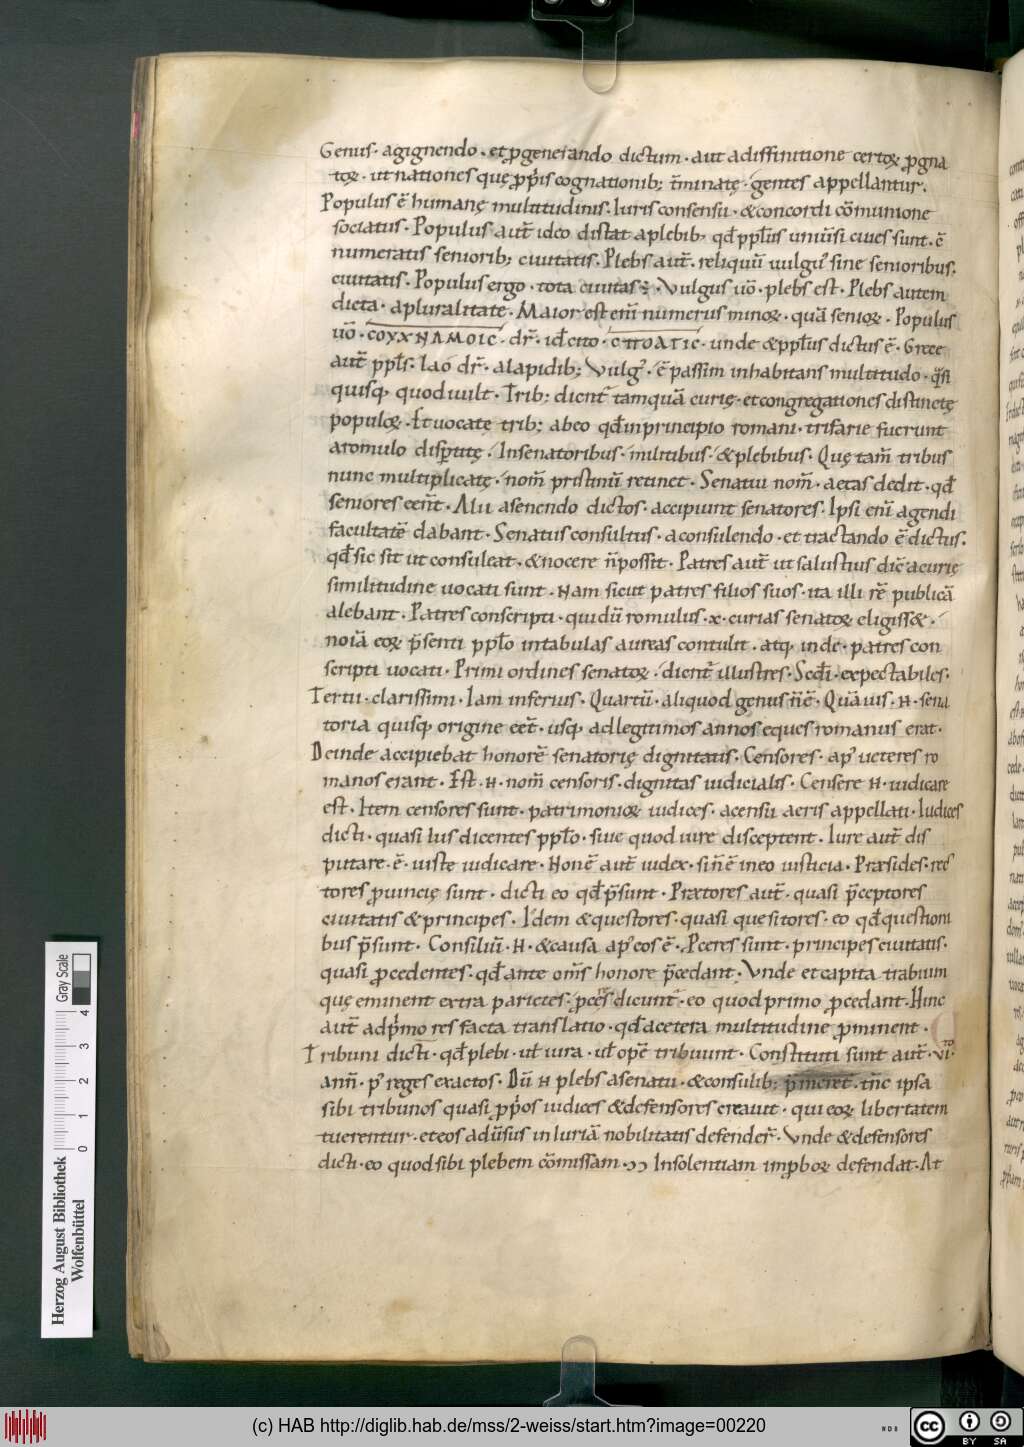 Genus· agignendo· et ꝓgenerando dictum· aut adiffinitione certoꝝ ꝓgna
toꝝ· ut nationes quę ꝓpͥis cognationib; t̄minatę· gentes appellantur.
Populus ē humanę multitudinis· Iuris consensu· & concordi cōmunione
sociatus· Populus aut̄ ideo distat aplebib; qđ ppl̄us uniūsi ciues sunt· ē
numeratis seniorib; ciuitatis· Plebs aut̄· reliquū uulgꝰ sine senioribus.
ciuitatis· Populus ergo· tota ciuitas ē· Vulgus uō· plebs est· Plebs autem
dicta· apluralitate· Maior est enī numerus minoꝝ· quā senioꝝ· Populus
uō· COYXNAMOIC· dr̄· id̄ cito· CΠOATIC· unde & ppl̄us dictus ē· Grece
aut̄ ppl̄s· lao dr̄· alapidib; Vulgꝰ· ē passim inhabitans multitudo· q̄si
quisq; quod uult· Trib; dicunt̄ tamquā curię· et congregationes distinctę
populoꝝ· Et uocatę trib; abeo qđ inprincipio romani· trifarie fuerunt
aromulo disp̱titę· Insenatoribus· militibus· & plebibus· Quę tam̄ tribus
nunc multiplicatę· nom̄ pristinū retinet· Senatui nom̄· aetas dedit· qđ
seniores eēnt̄· Alii asenendo dictos· accipiunt senatores· Ipsi enī agendi
facultatē dabant· Senatus consultus· aconsulendo· et tractando ē dictus.
qđ sic fit ut consuleat· & nocere n̄ possit· Patres aut̄ ut salustius dic̄ acurię
similitudine uocati sunt· Nam sicut patres filios suos· ita illi rē publicā
alebant· Patres conscripti· quidū romulus· x· curias senatoꝝ eligiss&·
noīa eoꝝ p̄senti ppl̄o intabulas aureas contulit· atq; inde· patres con
scripti uocati· Primi ordines senatoꝝ· dicunt̄ illustres· Scđi· expectabiles·
Tertii· clarissimi· Iam inferius· Quartū· aliquod genus n̄ ē· Quāuis· H· sena
toria quisq; origine eēt̄· usq; ad legitimos annos eques romanus erat·
Deinde accipiebat honorē senatorię dignitatis· Censores· apͩ ueteres ro
manos erant· Est· H· nom̄ censoris· dignitas iudicialis· Censere H· iudicare
est· Item censores sunt· patrimonioꝝ iudices· acensu aeris appellati· Iudices
dicti· quasi ius dicentes ppl̄o· siue quod iure disceptent· Iure aut̄ dis
putare· ē· iuste iudicare· Non ē aut̄ iudex· sin̄ ē in eo iusticia· Præsides· rec
tores ꝓuincię sunt· dicti eo qđ p̄sunt· Prætores aut̄· quasi p̄ceptores
ciuitatis & principes· Idem & questores· quasi quesitores· eo qđ questioni
bus p̄sunt· Consiliū· H· & causa apͩ eos ē· Ꝓceres sunt· principes ciuitatis·
quasi ꝓcedentes· qđ ante om̄s honore p̄cedant· Vnde et capita trabium
quę eminent extra parietes· ꝓceres dicunt̄· eo quod primo ꝓcedant· Hinc
aut̄ adpͥmores facta translatio· qđ acetera multitudine ꝓminent·
Tribuni dicti· qđ plebi· ul̄ iura· ul̄ opē tribuunt· Constituti sunt aut̄· VI·to
ann̄· pꝰ reges exactos· Dū H plebs asenatu· & consulib; p̄meret̄· tn̄c ipsa
sibi tribunos quasi ꝓpͥos iudices & defensores creauit· qui eoꝝ libertatem
tuerentur· et eos adūsus iniuriā nobilitatis defender̄· Vnde & defensores
dicti· eo quod sibi plebem cōmissam· ↄↄ Insolentiam imꝓboꝝ defendat· At
Herzog August Bibliothek
Wolfenbüttel
0 1 2 3 4
Gray Scale
(c) HAB http://diglib.hab.de/mss/2-weiss/start.htm?image=00220
cc BY SA